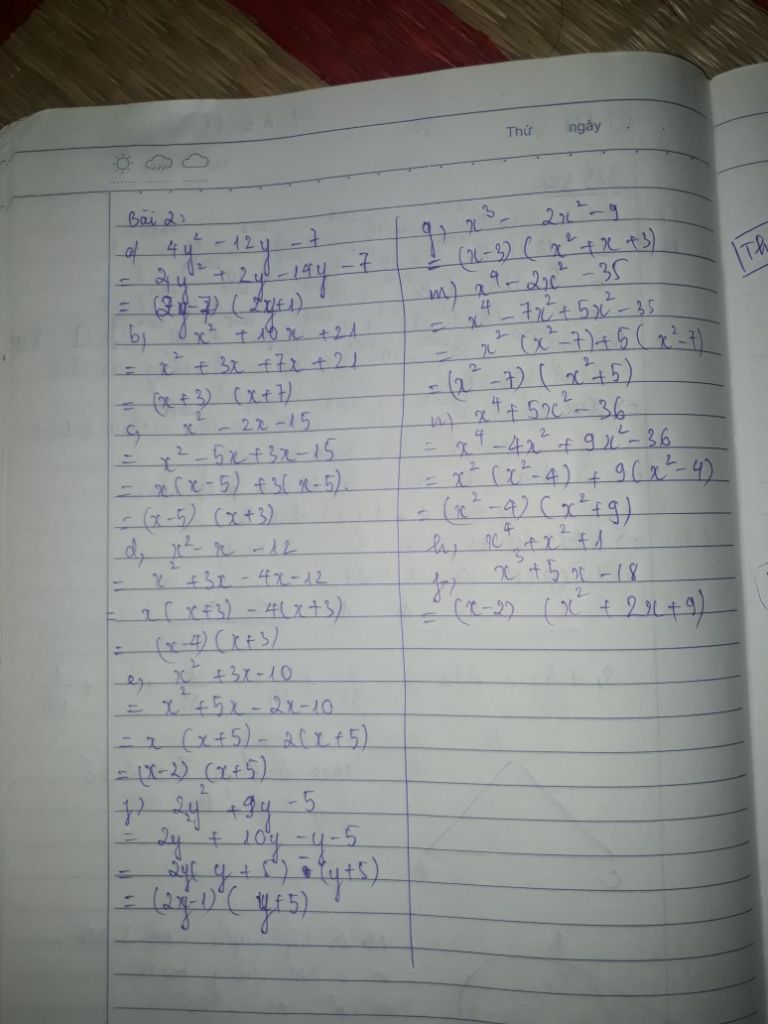 Thứ ngày
Bài 2:
a) 4y² - 12y - 7
= 4y² + 2y - 14y - 7
= (2y-7) (2y+1)
b, x² + 10x + 21
= x² + 3x + 7x + 21
= (x+3) (x+7)
c, x² - 2x - 15
= x² - 5x + 3x - 15
= x(x-5) + 3(x-5).
= (x-5) (x+3)
d, x² - x - 12
= x² + 3x - 4x - 12
= x(x+3) - 4(x+3)
= (x-4)(x+3)
e, x² + 3x - 10
= x² + 5x - 2x - 10
= x (x+5) - 2(x+5)
= (x-2) (x+5)
f) 2y² + 9y - 5
= 2y² + 10y - y - 5
= 2y(y+5) - (y+5)
= (2y-1)(y+5)
g, x³ - 2x² - 9
= (x-3)(x² + x + 3)
m) x⁴ - 2x² - 35
= x⁴ - 7x² + 5x² - 35
= x² (x²-7) + 5(x²-7)
= (x² - 7)(x² + 5)
n) x⁴ + 5x² - 36
= x⁴ - 4x² + 9x² - 36
= x² (x²-4) + 9(x²-4)
= (x² - 4)(x² + 9)
h, x⁴ + x² + 1
x³ + 5x - 18
= (x-2) (x² + 2x + 9)
Th